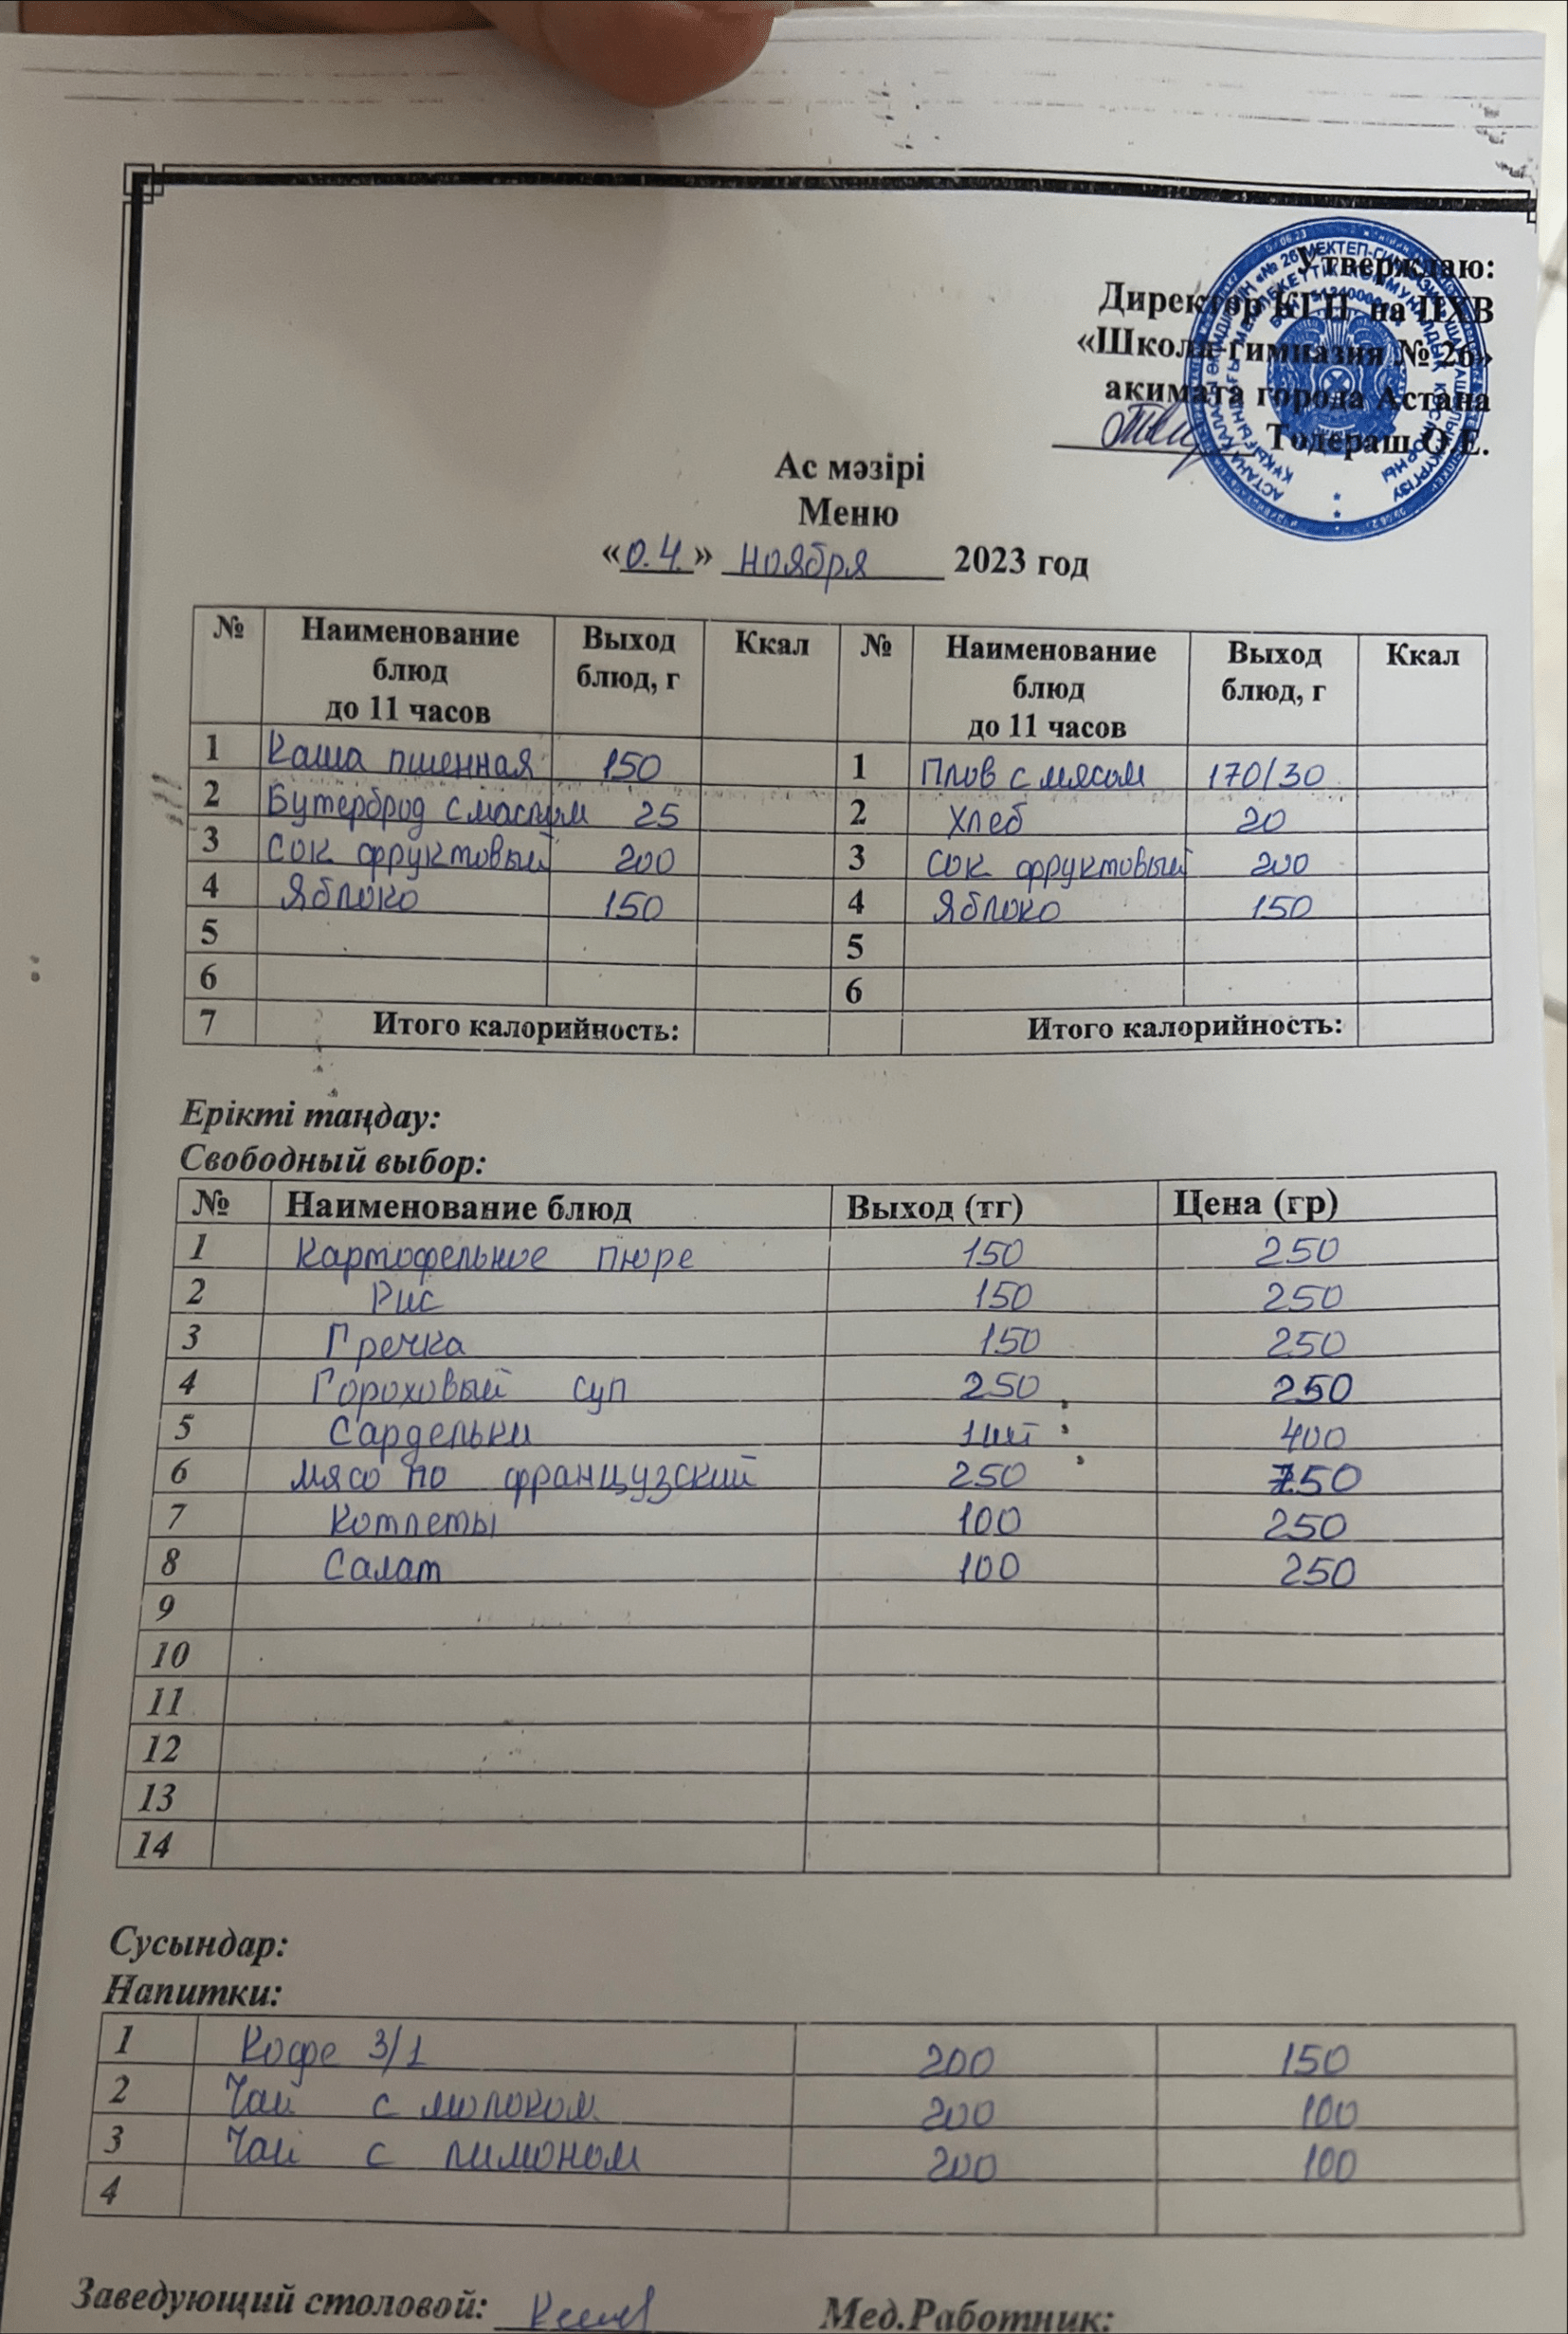 Утверждаю:
Директор КГП на ПХВ
«Школа-гимназия № 26»
акимата города Астана
Тодераш О.Е.
Ас мәзірі
Меню
«0.4.» ноября 2023 год
№ Наименование блюд до 11 часов Выход блюд, г Ккал № Наименование блюд до 11 часов Выход блюд, г Ккал
1 Каша пшенная 150 1 Плов с мясом 170/30
2 Бутерброд с маслом 25 2 Хлеб 20
3 Сок фруктовый 200 3 Сок фруктовый 200
4 Яблоко 150 4 Яблоко 150
5 5
6 6
7 Итого калорийность: Итого калорийность:
Ерікті таңдау:
Свободный выбор:
№ Наименование блюд Выход (тг) Цена (гр)
1 Картофельное пюре 150 250
2 Рис 150 250
3 Гречка 150 250
4 Гороховый суп 250 250
5 Сардельки 1шт 400
6 мясо по французский 250 750
7 Котлеты 100 250
8 Салат 100 250
9
10
11
12
13
14
Сусындар:
Напитки:
1 Кофе 3/1 200 150
2 Чай с молоком 200 100
3 Чай с лимоном 200 100
4
Заведующий столовой: Мед.Работник: